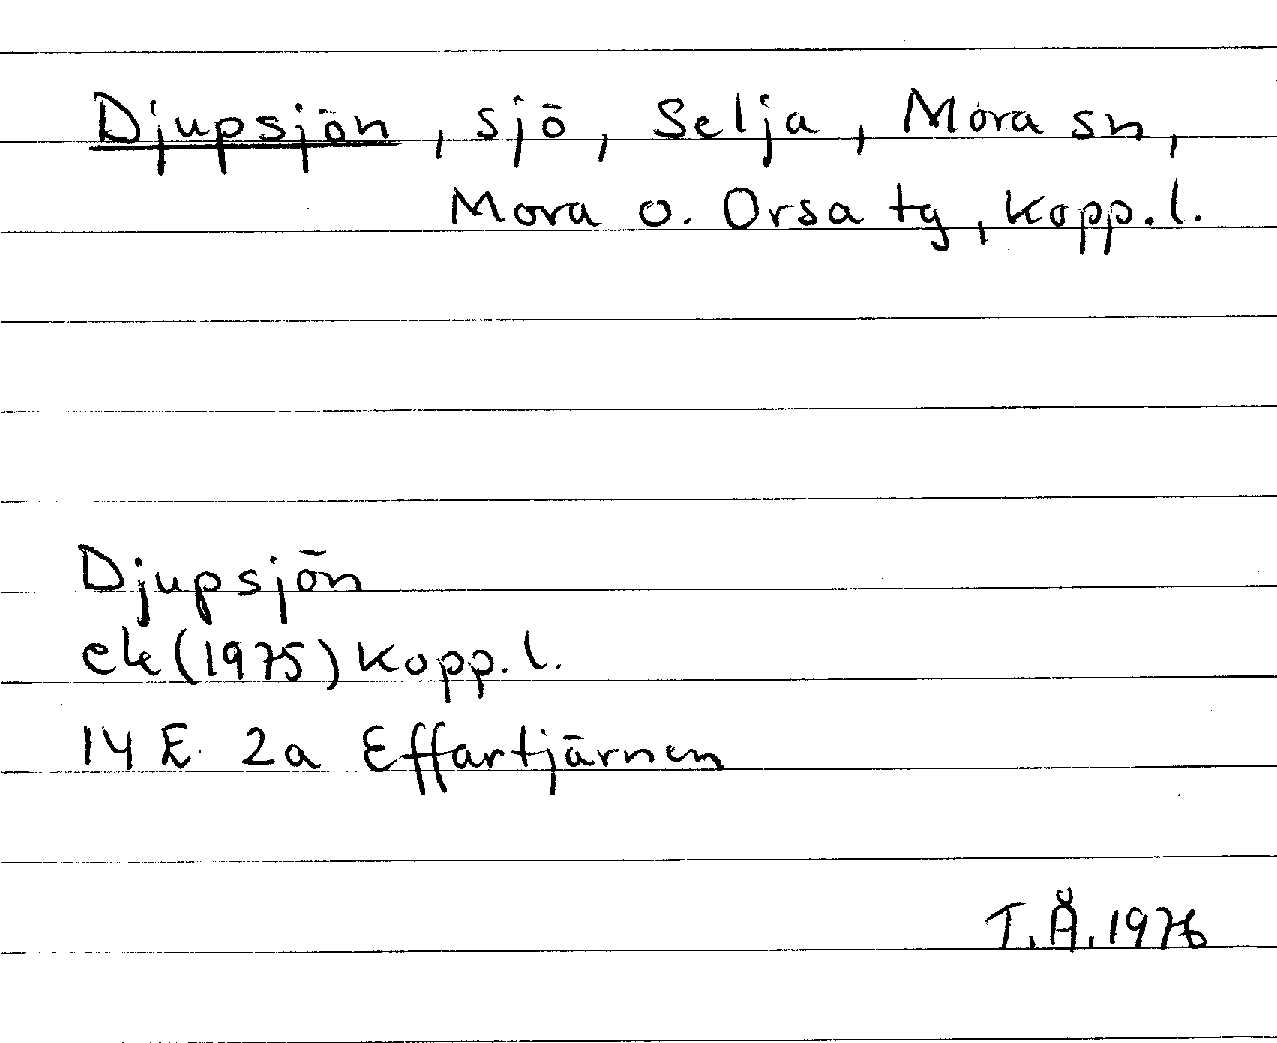 Djupsjön, sjö, Selja, Mora sn,
Mora o. Orsa tg, Kopp.l.
Djupsjön
ek (1975) Kopp.l.
14 E 2a Effartjärnen
T.Å. 1976